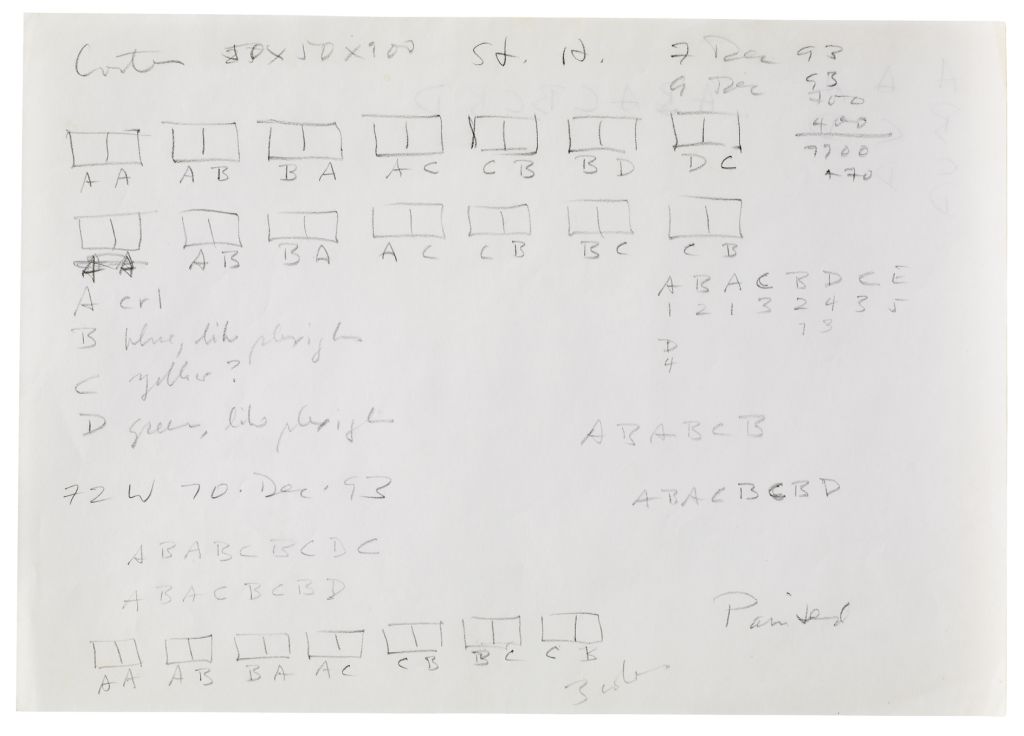 Corten 50x50x100 St. H. 7 Dec 93
9 Dec 93
700
400
A A A B B A A C C B B D D C
A A A B B A A C C B B C C B
A B A C B D C E
1 2 1 3 2 4 3 5
D
4
A crl
B blue, like plexiglas
C yellow?
D green, like plexiglas
A B A B C B
72 W 10. Dec. 93
A B A C B C B D
A B A B C B C D C
A B A C B C B D
Painted
A A A B B A A C C B B C C B
3 colors